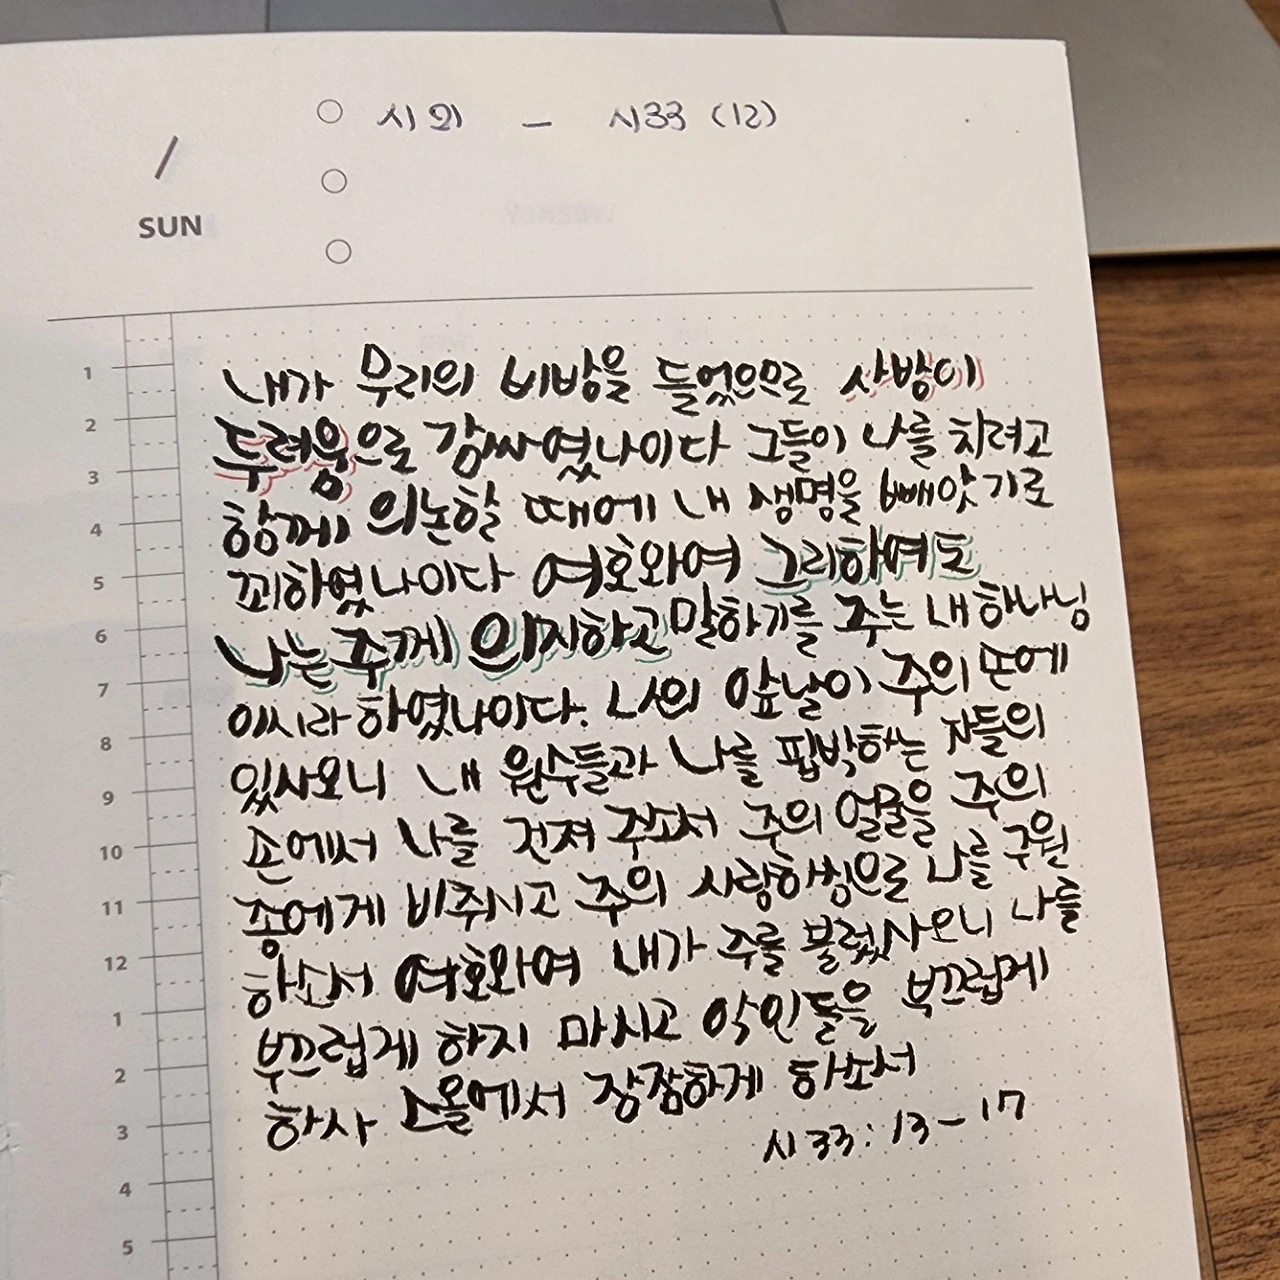 시 31 - 시33 (12)
/
SUN
1 내가 무리의 비방을 들었으므로 사방이
2 두려움으로 감싸였나이다 그들이 나를 치려고
3 함께 의논할 때에 내 생명을 빼앗기로
4 꾀하였나이다 여호와여 그리하여도
5 나는 주께 의지하고 말하기를 주는 내 하나님
6 이시라 하였나이다. 나의 앞날이 주의 손에
7 있사오니 내 원수들과 나를 핍박하는 자들의
8 손에서 나를 건져 주소서 주의 얼굴을 주의
9 종에게 비추시고 주의 사랑하심으로 나를 구원
10 하소서 여호와여 내가 주를 불렀사오니 나를
11 부끄럽게 하지 마시고 악인들을 부끄럽게
12 하사 스올에서 잠잠하게 하소서
시 33 : 13 - 17
1
2
3
4
5